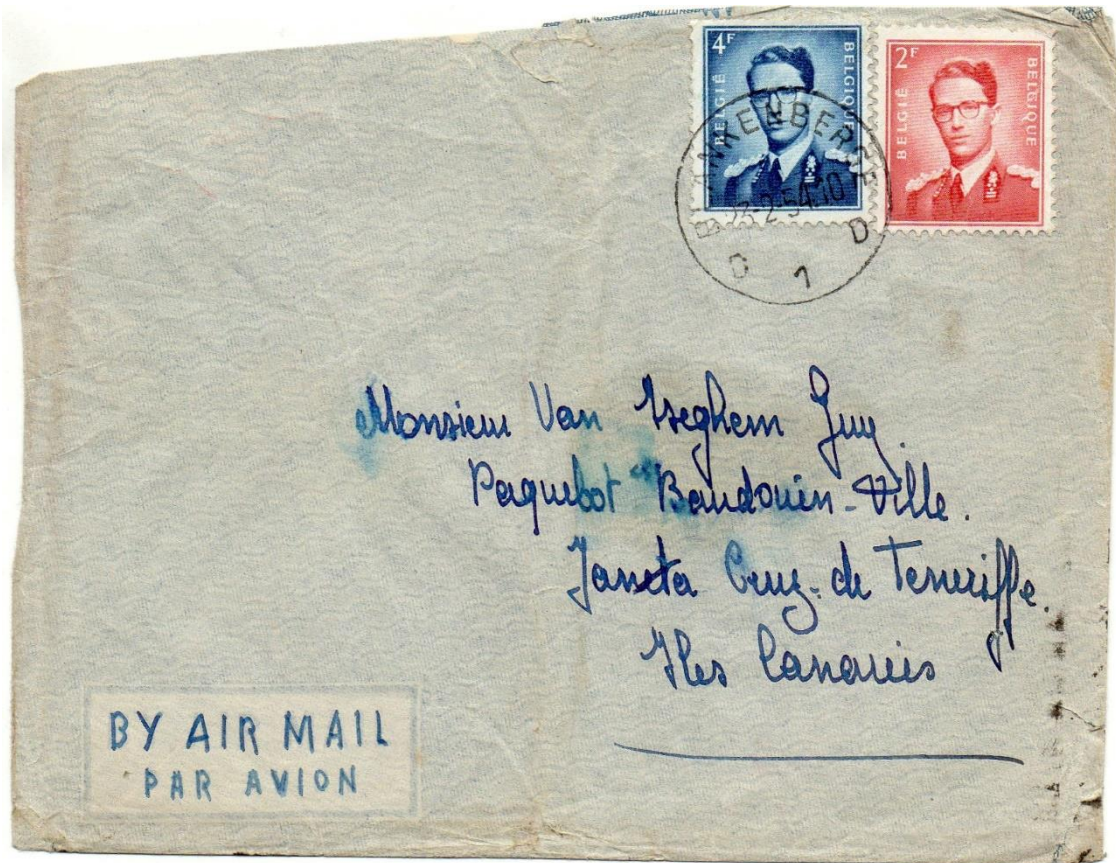 4F BELGIË BELGIQUE
2F BELGIË BELGIQUE
BLANKENBERGE
23-2-54.10
D 1 D
Monsieur Van Iseghem Guy.
Paquebot "Baudouin-Ville.
Sancta Cruz-de Teneriffe.
Iles Canaries
BY AIR MAIL
PAR AVION